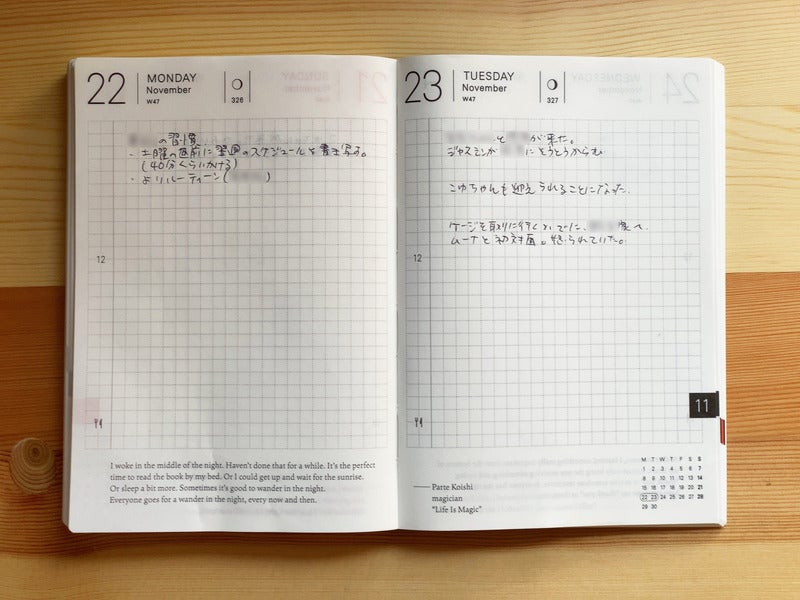 22
MONDAY
November
W47
326
の習慣
・土曜の昼前に翌週のスケジュールを書き写す。
(40分くらいかける)
・よりルーティーン( )
12
I woke in the middle of the night. Haven't done that for a while. It's the perfect
time to read the book by my bed. Or I could get up and wait for the sunrise.
Or sleep a bit more. Sometimes it's good to wander in the night.
Everyone goes for a wander in the night, every now and then.
23
TUESDAY
November
W47
327
と が来た。
ジャスミンが にとうとうからむ
こゆちゃんも迎えられることになった
ケージを取りに行くついでに、 家へ
ムーナと初対面。怒られていた。
12
11
Patte Koishi
magician
"Life Is Magic"
M T W T F S S
1 2 3 4 5 6 7
8 9 10 11 12 13 14
15 16 17 18 19 20 21
22 23 24 25 26 27 28
29 30